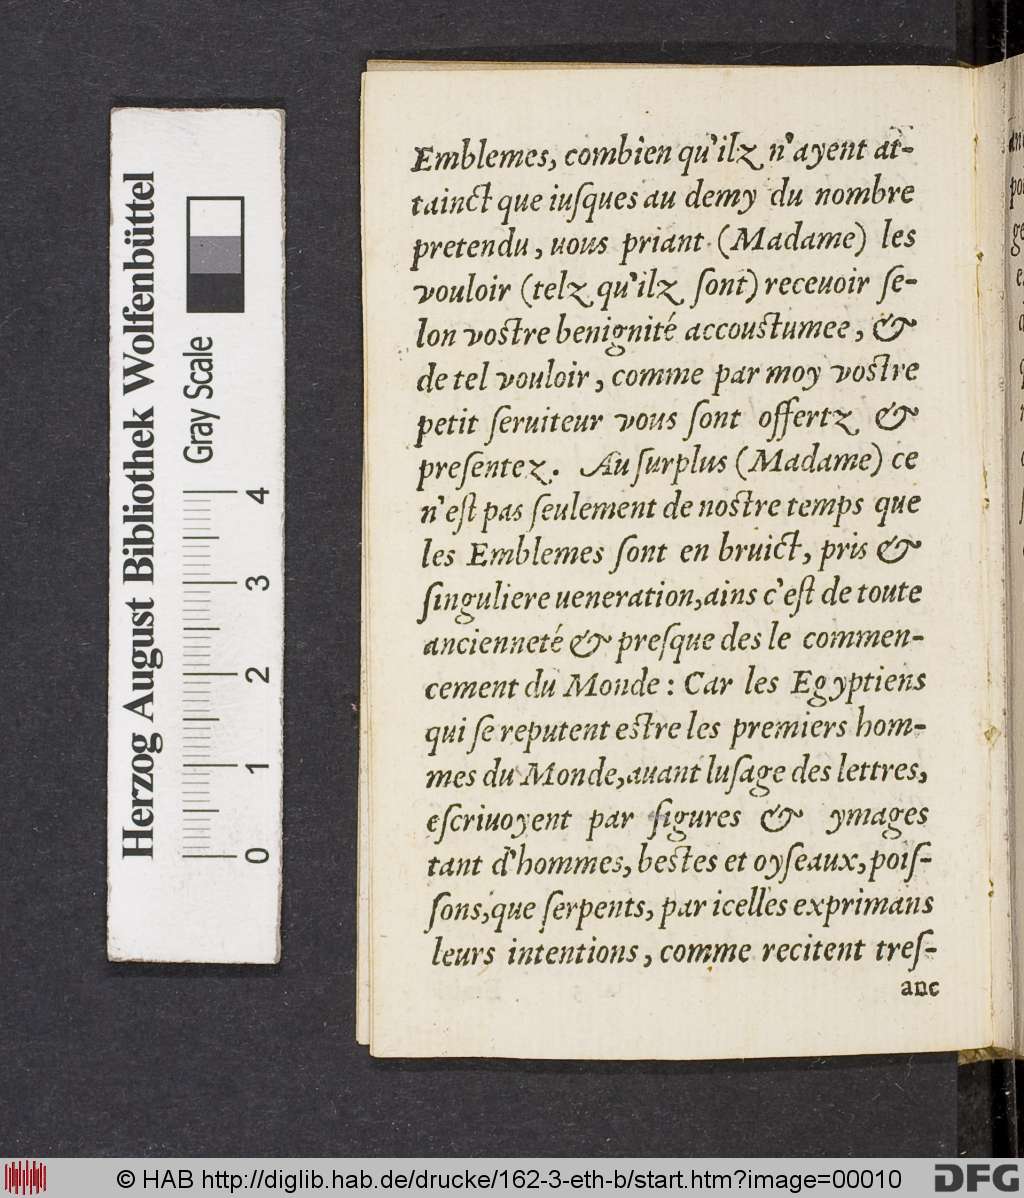 Emblemes, combien qu'ilz n'ayent at-
tainct que iuſques au demy du nombre
pretendu, uous priant (Madame) les
vouloir (telz qu'ilz ſont) receuoir ſe-
lon voſtre benignité accouſtumee, &
de tel vouloir, comme par moy voſtre
petit ſeruiteur vous ſont offertz &
preſentez. Au ſurplus (Madame) ce
n'eſt pas ſeulement de noſtre temps que
les Emblemes ſont en bruict, pris &
ſinguliere ueneration, ains c'eſt de toute
ancienneté & preſque des le commen-
cement du Monde: Car les Egyptiens
qui ſe reputent eſtre les premiers hom-
mes du Monde, auant luſage des lettres,
eſcriuoyent par figures & ymages
tant d'hommes, beſtes et oyſeaux, poiſ-
ſons, que ſerpents, par icelles exprimans
leurs intentions, comme recitent treſ-
anc
Herzog August Bibliothek Wolfenbüttel
Gray Scale
0 1 2 3 4
© HAB http://diglib.hab.de/drucke/162-3-eth-b/start.htm?image=00010
DFG